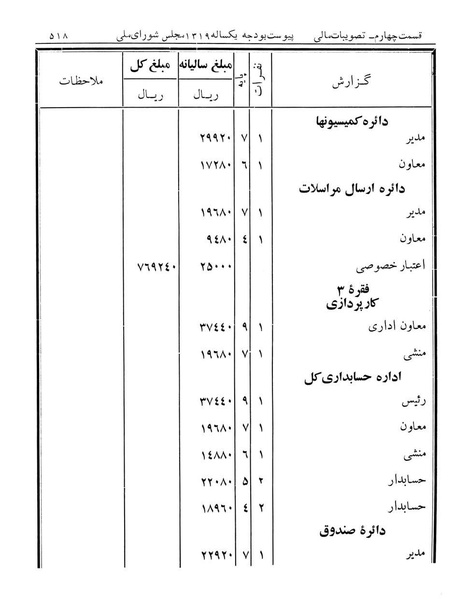 قسمت چهارم ـ تصویبات مالی پیوست بودجه یکساله ۱۳۱۹ مجلس شورای ملی ۵۱۸
گزارش نفرات پایه مبلغ سالیانه ریال مبلغ کل ریال ملاحظات
دائره کمیسیونها
مدیر ۱ ۷ ۲۹۹۲۰
معاون ۱ ۶ ۱۷۲۸۰
دائره ارسال مراسلات
مدیر ۱ ۷ ۱۹۶۸۰
معاون ۱ ٤ ۹٤۸۰
اعتبار خصوصی ۲۵۰۰۰ ۷۶۹۲٤۰
فقرهٔ ۳
کارپردازی
معاون اداری ۱ ۹ ۳۷٤٤۰
منشی ۱ ۷ ۱۹۶۸۰
اداره حسابداری کل
رئیس ۱ ۹ ۳۷٤٤۰
معاون ۱ ۷ ۱۹۶۸۰
منشی ۱ ۶ ۱٤۸۸۰
حسابدار ۲ ۵ ۲۲۰۸۰
حسابدار ۲ ٤ ۱۸۹۶۰
دائرهٔ صندوق
مدیر ۱ ۷ ۲۲۹۲۰